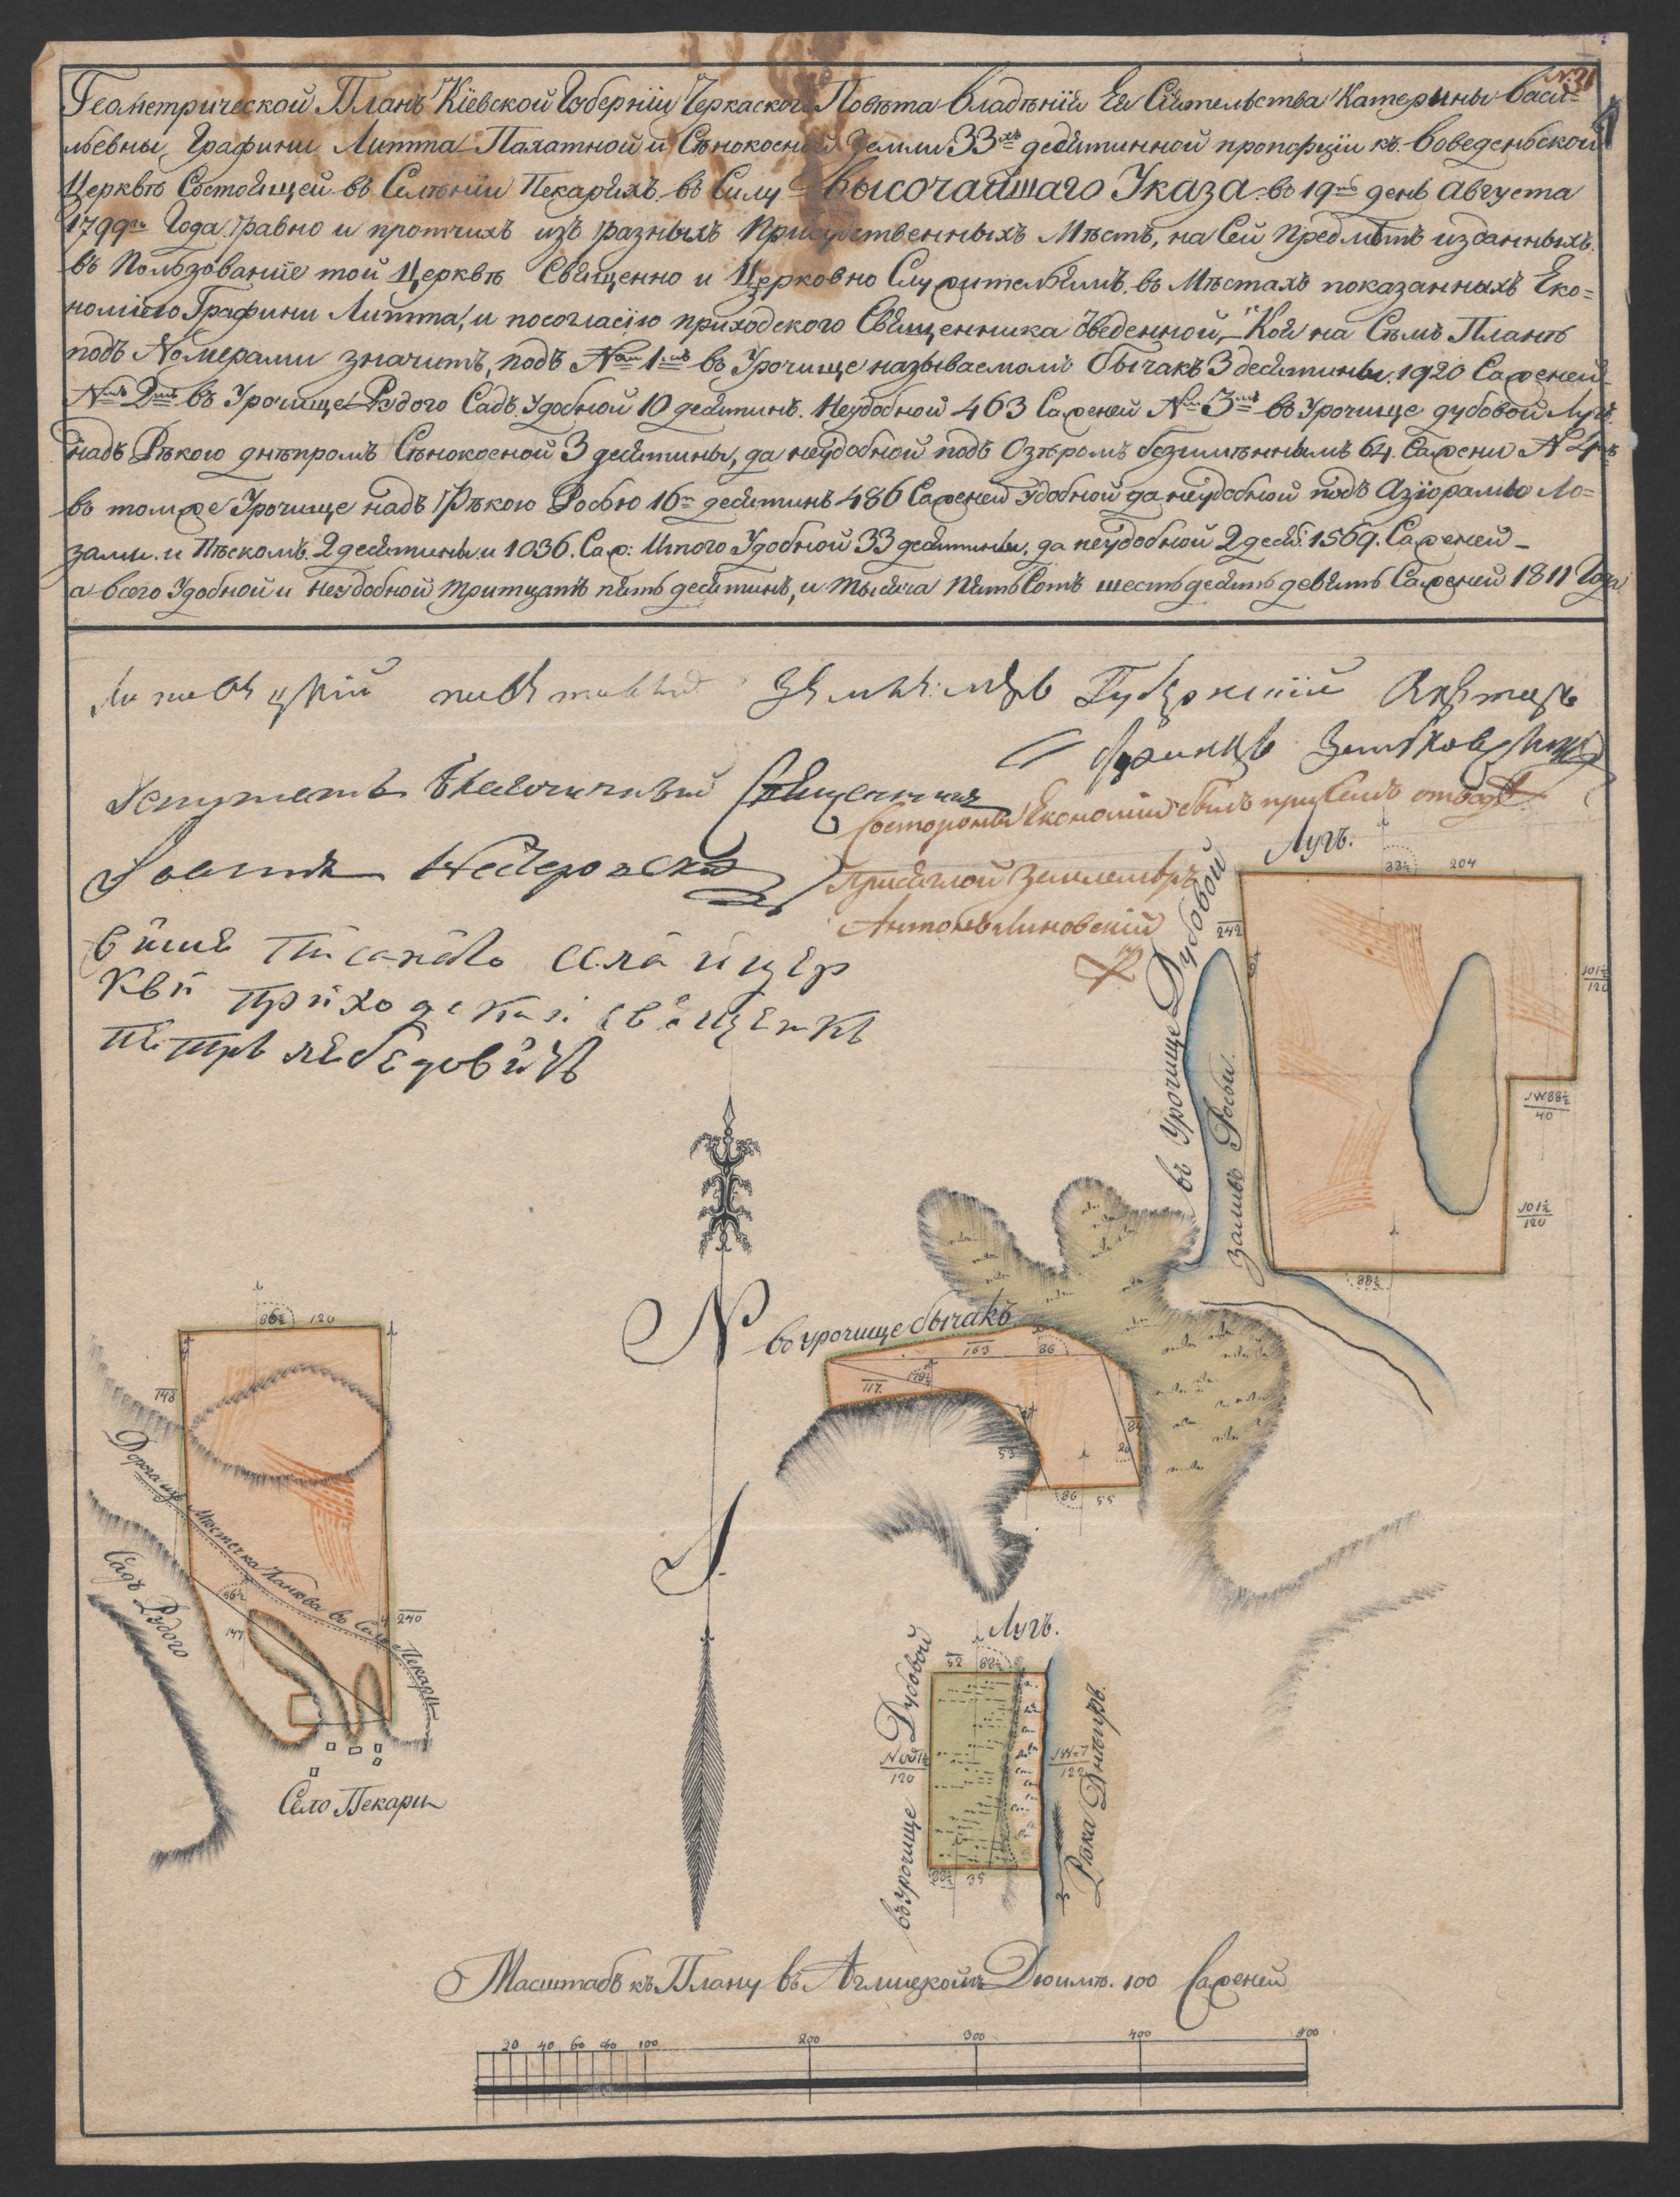 № 21
Геометрической Планъ Кіевской Губерніи Черкаского Повѣта владѣній Ея Сіятельства Катерины Васи=
льевны Графини Литта Пахатной и Сѣнокосной Земли 33хъ десятинной пропорціи къ воведеньской
Церквѣ Состоящей въ Селѣніи Пекаряхъ въ Силу высочайшаго Указа въ 19мъ день Августа
1799го Года равно и протчихъ изъ разныхъ Присудственныхъ Мѣстъ, на Сей предмѣтъ изданныхъ
въ Пользованіе той Церквѣ Священно и Церковно Служителямъ въ Мѣстахъ показанныхъ Еко=
номіею Графини Литта, и посогласію приходского Священника Кои на Сѣмъ Планѣ
подъ Номерами значитъ, подъ №м 1мъ въ Урочище называемомъ бычакъ 3 десятины 1920 Саженей
№мъ 2мъ въ Урочище Рудого Садъ Удобной 10 десятинъ. Неудобной 463 Саженей №м 3мъ въ Урочище дубовой Лугъ
надъ Рѣкою днѣпромъ Сѣнокосной 3 десятины, да неудобной подъ Озѣромъ безимѣннымъ 64 Сажени № 4мъ
въ томже Урочище надъ Рѣкою Росью 16ть десятинъ 486 Саженей Удобной да неудобной подъ Ло=
зами и Пѣскомъ 2 десятины и 1036. Саж: Итого Удобной 33 десятины, да неудобной 2 деся: 1569. Саженей
а всего Удобной и неудобной тритцать пять десятинъ, и тысяча пять Сотъ шестьдесять девять Саженей 1811 Года
Губернскій
Депутатъ Священникъ
Состороны Економіи былъ при Семъ отводе
Присяглой Землемѣръ
Антонъ Линовскій
выше Писанаго села и цер
кви приходский священикъ
Петръ лебедовичъ
въ Урочище Дубовой Лугъ.
88½ 204
242
101½
120
88½
40
101½
120
88½
Заливъ Росьи
N
въ урочище бычакъ
163 86
117
84
53
20
86 55
S.
86½ 120
148
240
147
Дорога изъ Мѣстечка Канева въ Село Пекари
Садъ Рудого
Село Пекари
въ Урочище Дубовой Лугъ.
52 88½
120
122
88½ 35
Рѣка Днѣпръ
Масштабъ къ Плану въ Аглицкомъ Дюимѣ. 100 Саженей
20 40 60 80 100 200 300 400 500